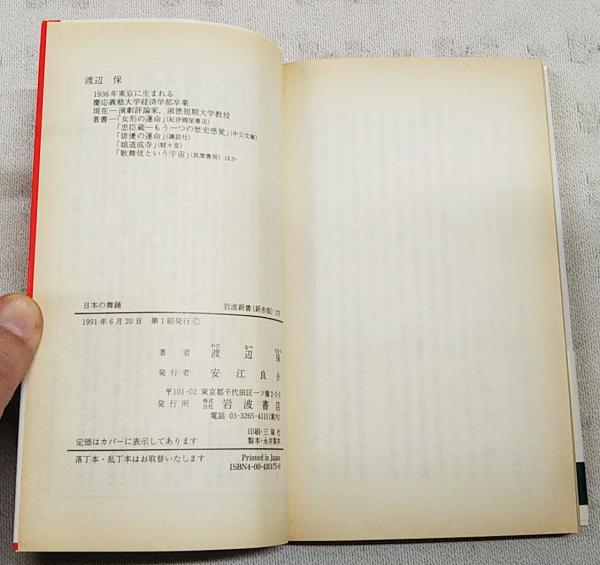 渡辺 保
1936年東京に生まれる
慶応義塾大学経済学部卒業
現在―演劇評論家、淑徳短期大学教授
著書―「女形の運命」(紀伊國屋書店)
「忠臣蔵―もう一つの歴史感覚」(中公文庫)
「俳優の運命」(講談社)
「娘道成寺」(駸々堂)
「歌舞伎という宇宙」(筑摩書房) ほか
日本の舞踊 岩波新書(新赤版)175
1991年6月20日 第1刷発行©
わた なべ たもつ
著者 渡辺 保
発行者 安江良介
〒101-02 東京都千代田区一ツ橋2-5-5
発行所 株式会社 岩波書店
電話 03-3265-4111(案内)
印刷・三陽社
製本・永井製本
定価はカバーに表示してあります
落丁本・乱丁本はお取替いたします
Printed in Japan
ISBN4-00-430175-0